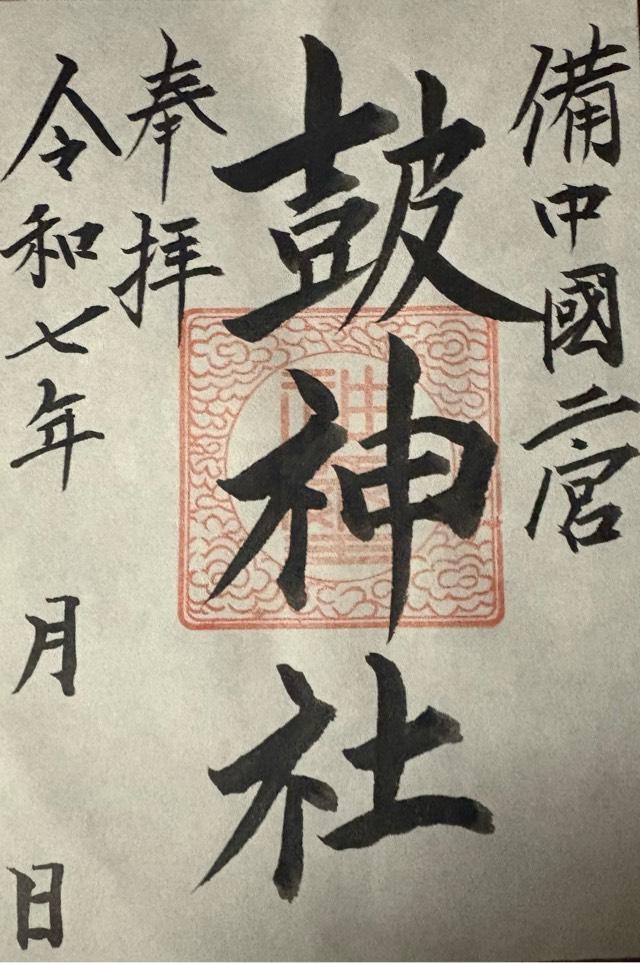 備中國二宮
鼓神社
奉拝
令和七年　月　日